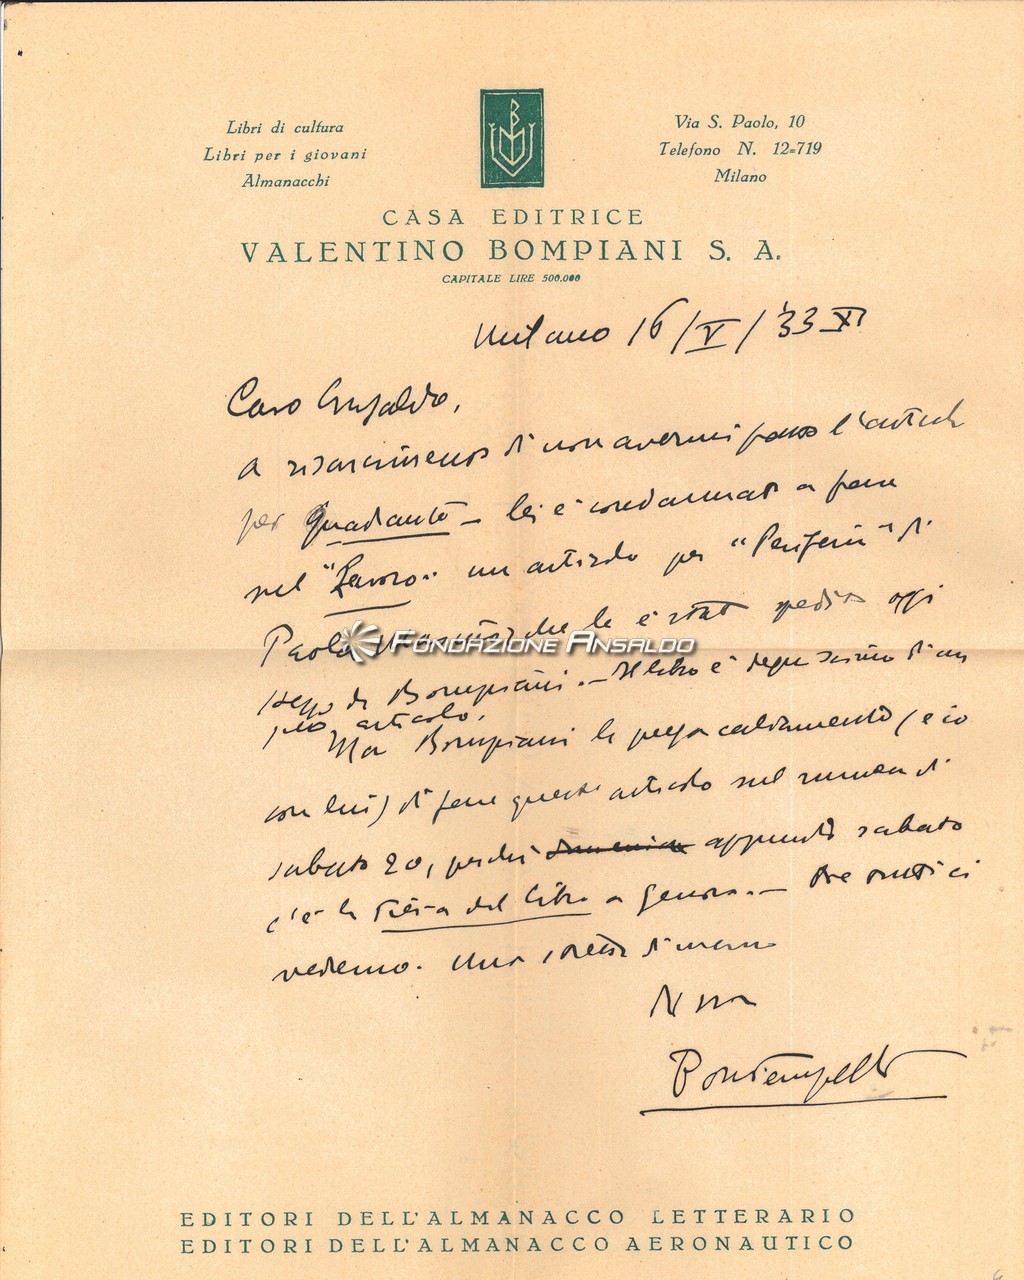 Libri di cultura
Libri per i giovani
Almanacchi
B
Via S. Paolo, 10
Telefono N. 12=719
Milano
CASA EDITRICE
VALENTINO BOMPIANI S. A.
CAPITALE LIRE 500.000
Milano 16/V/'33 XI
Caro Ansaldo,
a risarcimento di non avermi fatto l'articolo
per Quadrante – lei è condannato a fare
nel "Lavoro" un articolo per "Periferia" di
Paola che le è stato spedito oggi
da Bompiani. – Il libro è degnissimo di un
suo articolo.
Ma Bompiani la prega caldamente (e io
con lui) di fare questo articolo sul numero di
sabato 20, perché domenica appunto sabato
c'è la Festa del Libro a Genova. –
vedremo. Una stretta di mano
Bontempelli
FONDAZIONE ANSALDO
EDITORI DELL'ALMANACCO LETTERARIO
EDITORI DELL'ALMANACCO AERONAUTICO